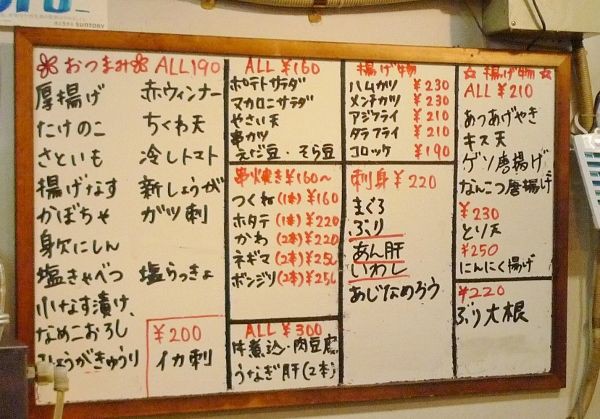 SUNTORY
おつまみ ALL190
厚揚げ
たけのこ
さといも
揚げなす
かぼちゃ
身欠にしん
塩きゃべつ
小なす漬け
なめこおろし
ひょうがきゅうり
赤ウィンナー
ちくわ天
冷しトマト
新しょうが
ガツ刺
塩らっきょ
¥200
イカ刺
ALL ¥160
ポテトサラダ
マカロニサラダ
やさい天
串カツ
えだ豆・そら豆
串焼き ¥160〜
つくね(1本)¥160
ホタテ(1本)¥220
かわ(2本)¥220
ネギマ(2本)¥250
ボンジリ(2本)¥250
ALL ¥300
牛煮込・肉豆腐
うなぎ肝(2本)
揚げ物
ハムカツ ¥230
メンチカツ ¥230
アジフライ ¥210
タラフライ ¥210
コロッケ ¥190
刺身 ¥220
まぐろ
ぶり
あん肝
いわし
あじなめろう
☆揚げ物☆
ALL ¥210
あつあげやき
キス天
ゲソ唐揚げ
なんこつ唐揚げ
¥230
とり天
¥250
にんにく揚げ
¥220
ぶり大根